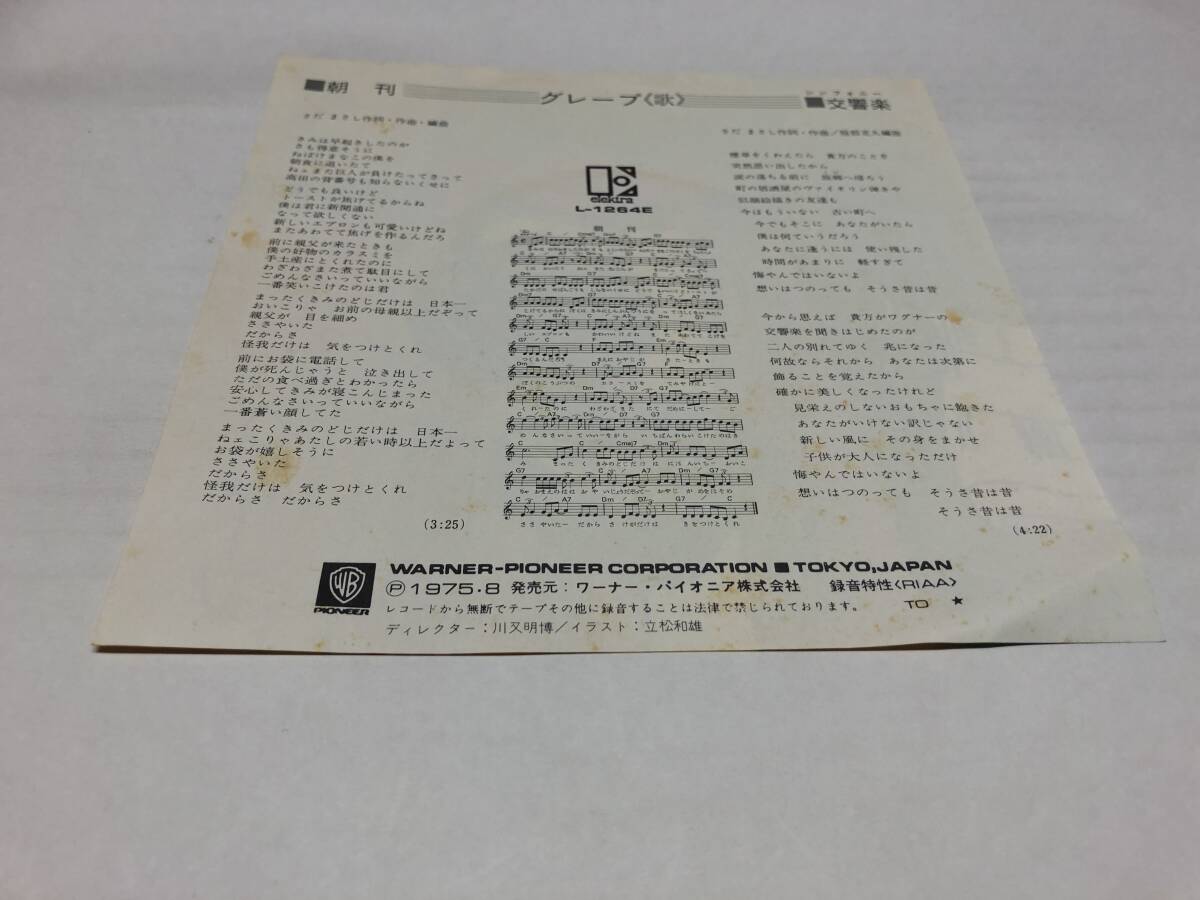 ■朝 刊
グレープ《歌》
シンフォニー
■交響楽
さだ まさし作詞・作曲・編曲
きみは早起きしたのが
さも得意そうに
ねぼけまなこの僕を
朝食に追いたて
ねェまた巨人が負けたってさって
高田の背番号も知らないくせに
どうでも良いけど
トーストが焦げてるからね
僕は君に新聞誦に
なって欲しくない
新しいエプロンも可愛いけどね
またあわてて焦げを作るんだろ
前に親父が来たときも
僕の好物のカラスミを
手土産にとくれたのに
わざわざまた煮て駄目にして
ごめんなさいっていいながら
一番笑いこけたのは君
まったくきみのどじだけは 日本一
おいこりゃ お前の母親以上だぞって
親父が 目を細め
ささやいた
だからさ
怪我だけは 気をつけとくれ
前にお袋に電話して
僕が死んじゃうと 泣き出して
ただの食べ過ぎとわかったら
安心してきみが寝こんじまった
ごめんなさいっていいながら
一番蒼い顔してた
まったくきみのどじだけは 日本一
ねェこりゃあたしの若い時以上だよって
お袋が嬉しそうに
ささやいた
だからさ
怪我だけは 気をつけとくれ
だからさ だからさ
(3:25)
elektra
L-1264E
朝 刊
さだ まさし作詞・作曲/
煙草をくわえたら 貴方のことを
突然思い出したから
涙の落ちる前に 故郷へ帰ろう
町の居酒屋のヴァイオリン弾きや
似顔絵描きの友達も
今はもういない 古い町へ
今でもそこに あなたがいたら
僕は何ていうだろう
あなたに逢うには 使い残した
時間があまりに 軽すぎて
悔やんではいないよ
想いはつのっても そうさ昔は昔
今から思えば 貴方がワグナーの
交響楽を聞きはじめたのが
二人の別れてゆく 兆になった
何故ならそれから あなたは次第に
飾ることを覚えたから
確かに美しくなったけれど
見栄えのしないおもちゃに飽きた
あなたがいけない訳じゃない
新しい風に その身をまかせ
子供が大人になっただけ
悔やんではいないよ
想いはつのっても そうさ昔は昔
そうさ昔は昔
(4:22)
WB
PIONEER
WARNER-PIONEER CORPORATION ■ TOKYO,JAPAN
Ⓟ1975・8 発売元：ワーナー・パイオニア株式会社 録音特性〈RIAA〉
レコードから無断でテープその他に録音することは法律で禁じられております。 TO ★
ディレクター：川又明博/イラスト：立松和雄